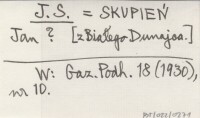 J.S. = SKUPIEŃ
Jan ? [z Białego Dunajca.]
W: Gaz. Podh. 18 (1930),
nr 10.